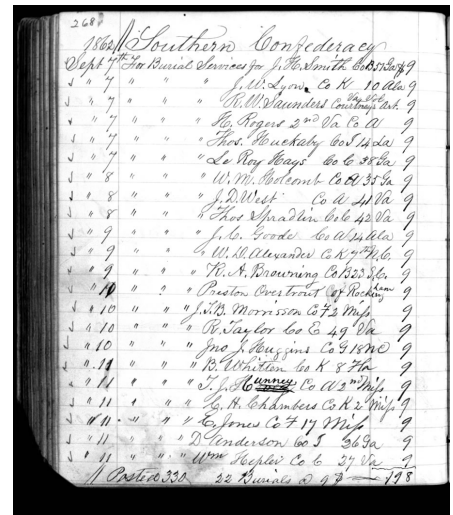 268
1862 Southern Confederacy
Sept 7th For Burial Services for J. H. Smith Co B 35 Ga $ 9
" 7 " " " J. W. Lyon Co K 10 Ala 9
" 7 " " " R. W. Saunders Courtneys Art. Va Vol 9
" 7 " " " H. Rogers 2nd Va Co A 9
" 7 " " " Thos. Huckaby Co I 14 La 9
" 7 " " " Le Roy Hays Co C 38 Ga 9
" 8 " " " W. M. Holcomb Co A 35 Ga 9
" 8 " " " J. D. West Co A 41 Va 9
" 8 " " " Thos Spradlin Co C 42 Va 9
" 9 " " " J. C. Goode Co A 14 Ala 9
" 9 " " " W. D. Alexander Co K 7th N.C. 9
" 9 " " " K. A. Browning Co B 23 S.C. 9
" 10 " " " Preston Overtrout of Rockingham 9
" 10 " " " J. T. B. Morrisson Co F 2 Miss 9
" 10 " " " R. Taylor Co E 49 Va 9
" 10 " " " Jno J. Huggins Co G 18 NC 9
" 11 " " " B. Whitten Co K 8 Fla 9
" 11 " " " T. J. Hunney Co A 2nd Miss 9
" 11 " " " C. H. Chambers Co K 2 Miss 9
" 11 " " " E. Jones Co F 17 Miss 9
" 11 " " " D. Anderson Co I 26 Ga 9
" 11 " " " Wm Hepler Co C 27 Va 9
Posted 330 22 Burials @ 9 $ 198